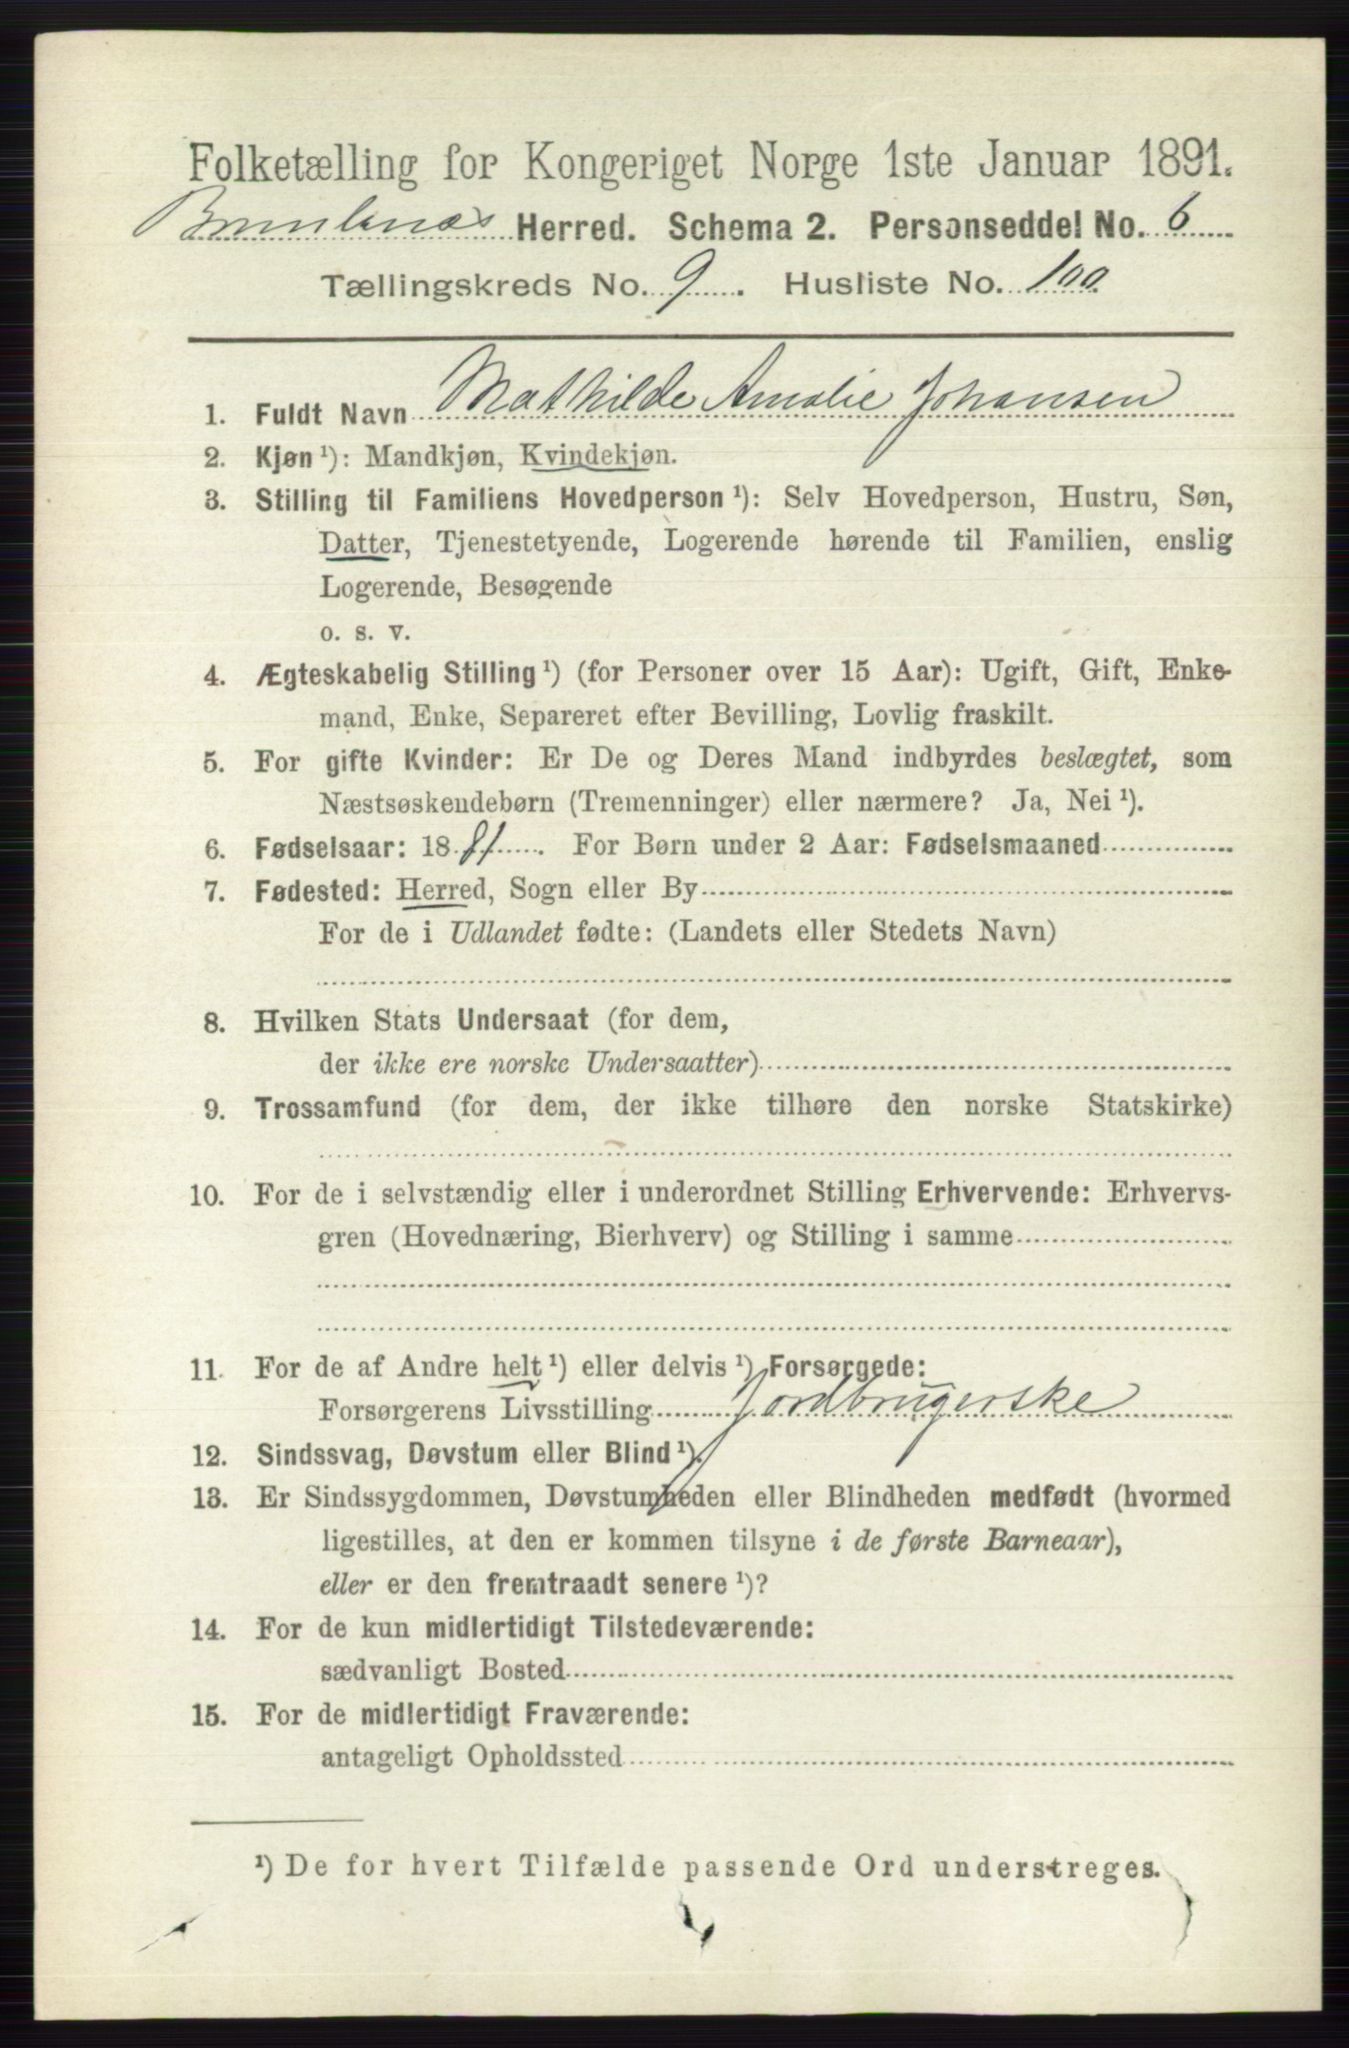 Folketælling for Kongeriget Norge 1ste Januar 1891.
Brunlanæs Herred. Schema 2. Personseddel No. 6
Tællingskreds No. 9. Husliste No. 100
1. Fuldt Navn Mathilde Amalie Johansen
2. Kjøn ¹): Mandkjøn, Kvindekjøn.
3. Stilling til Familiens Hovedperson ¹): Selv Hovedperson, Hustru, Søn,
Datter, Tjenestetyende, Logerende hørende til Familien, enslig
Logerende, Besøgende
o. s. v.
4. Ægteskabelig Stilling ¹) (for Personer over 15 Aar): Ugift, Gift, Enke-
mand, Enke, Separeret efter Bevilling, Lovlig fraskilt.
5. For gifte Kvinder: Er De og Deres Mand indbyrdes beslægtet, som
Næstsøskendebørn (Tremenninger) eller nærmere? Ja, Nei ¹).
6. Fødselsaar: 1881. For Børn under 2 Aar: Fødselsmaaned
7. Fødested: Herred, Sogn eller By
For de i Udlandet fødte: (Landets eller Stedets Navn)
8. Hvilken Stats Undersaat (for dem,
der ikke ere norske Undersaatter)
9. Trossamfund (for dem, der ikke tilhøre den norske Statskirke)
10. For de i selvstændig eller i underordnet Stilling Erhvervende: Erhvervs-
gren (Hovednæring, Bierhverv) og Stilling i samme
11. For de af Andre helt ¹) eller delvis ¹) Forsørgede:
Forsørgerens Livsstilling Jordbrugerske
12. Sindssvag, Døvstum eller Blind ¹).
13. Er Sindssygdommen, Døvstumheden eller Blindheden medfødt (hvormed
ligestilles, at den er kommen tilsyne i de første Barneaar),
eller er den fremtraadt senere ¹)?
14. For de kun midlertidigt Tilstedeværende:
sædvanligt Bosted
15. For de midlertidigt Fraværende:
antageligt Opholdssted
¹) De for hvert Tilfælde passende Ord understreges.